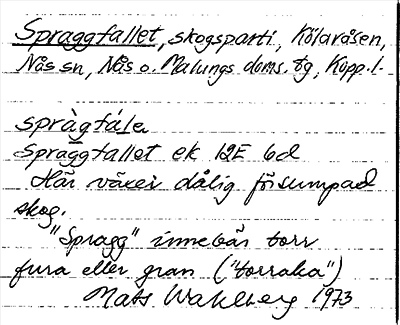 Spraggfallet, skogsparti, Kölaråsen,
Nås sn, Nås o. Malungs doms. tg, Kopp. l.
spràgfála
Spraggfallet ek 12E 6d
Här växer dålig försumpad
skog.
"Spragg" innebär torr
fura eller gran ("torraka")
Mats Wahlberg 1973